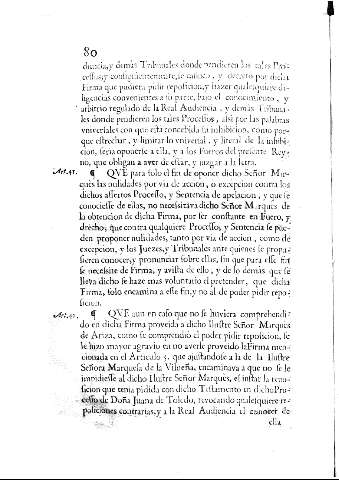 80
diencia, y demás Tribunales donde pendieren los tales Pro-
cessos, y consiguientemente, se conoce, y decreto por dicha
Firma que pudiera pidir reposicion, y hazer qualesquiere di-
ligencias convenientes a su parte, baxo el conocimiento, y
arbitrio regulado de la Real Audiencia, y demás Tribuna-
les donde pendieren los tales Processos, assi por las palabras
vniversales con que està concebida su inhibicion, como por-
que estrechar, y limitar lo vniversal, y literal de la inhibi-
cion, seria oponerse a ella, y a los Fueros del presente Rey-
no, que obligan a aver de estar, y juzgar a la letra.
Art. 41. ¶ QVE para solo el fin de oponer dicho Señor Mar-
quès las nulidades por via de accion, o excepcion contra los
dichos assertos Processo, y Sentencia de apelacion, y que se
conociesse de ellas, no necessitava dicho Señor Marquès de
la obtencion de dicha Firma, por ser constante en Fuero, y
drecho, que contra qualquiere Processo, y Sentencia se pue-
den proponer nulidades, tanto por via de accion, como de
excepcion, y los Juezes, y Tribunales ante quienes se propu-
sieren conocer, y pronunciar sobre ellas, sin que para esse fin
se necessite de Firma, y avissa de ello, y de lo demás que se
lleva dicho se haze mas voluntario el pretender, que dicha
Firma, solo encamina a esse fin, y no al de poder pidir repo-
sicion.
Art. 42. ¶ QVE aun en caso que no se huviera comprehendi-
do en dicha Firma proveida a dicho Ilustre Señor Marquès
de Ariza, como se comprehendió el poder pidir reposicion, se
le haze mayor agravio en no averle proveido la Firma men-
cionada en el Articulo 5. que ajustandose a la de la Ilustre
Señora Marquesa de la Vilueña, encaminava a que no se le
impidiesse al dicho Ilustre Señor Marquès, el instar la repo-
sicion que tenia pidida con dicho Testamento en dicho Pro-
cesso de Doña Juana de Toledo, revocando qualesquiere re-
posiciones contrarias, y a la Real Audiencia el conocer de
ella